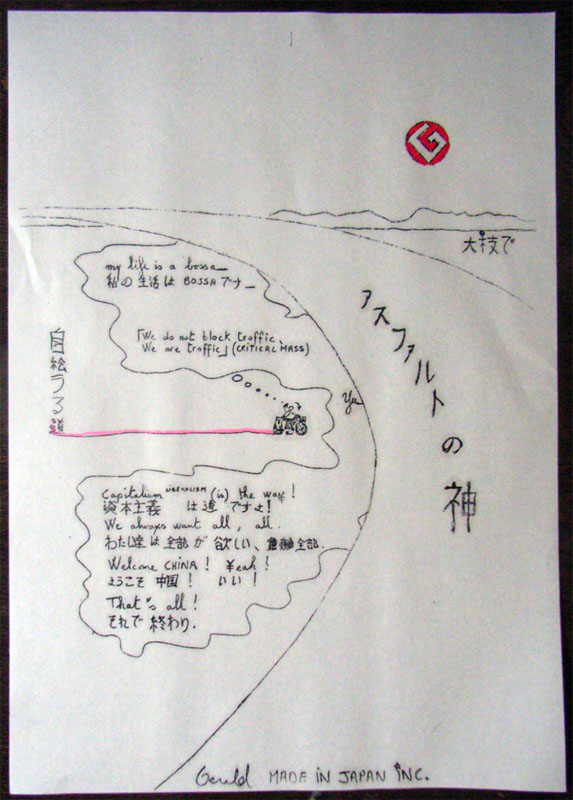 大枝で
my life is a bossa_
私の生活は BOSSAです_
「We do not block traffic
We are traffic」(CRITICAL MASS)
アスファルトの神
Capitalism LIBERALISM (is) the way!
資本主義 は道ですよ!
We always want all, all.
わたし達は全部が欲しい、全部.
Welcome CHINA! ¥eah!
ようこそ 中国! いい!
That's all!
それで 終わり.
Gerald MADE IN JAPAN INC.